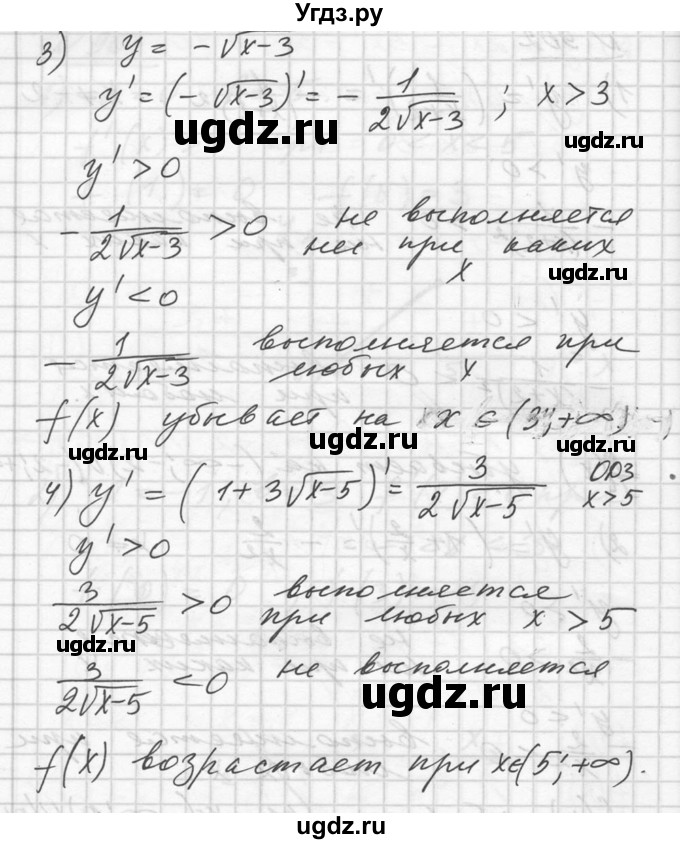 Угдз.ру
3) y = -√x-3
y' = (-√x-3)' = - 1/2√x-3 ; x > 3
ugdz.ru
ugdz.ru
y' > 0
- 1/2√x-3 > 0 не выполняется
ни при каких
x
ugdz.ru
y' < 0
- 1/2√x-3 выполняется при
любых x
ugdz.ru
f(x) убывает на x ∈ (3; +∞)
ugdz.ru
4) y' = (1+3√x-5)' = 3/2√x-5 ОДЗ
x > 5
y' > 0
3/2√x-5 > 0 выполняется
при любых x > 5
ugdz.ru
3/2√x-5 < 0 не выполняется
ugdz.ru
f(x) возрастает при x∈(5; +∞).
ugdz.ru